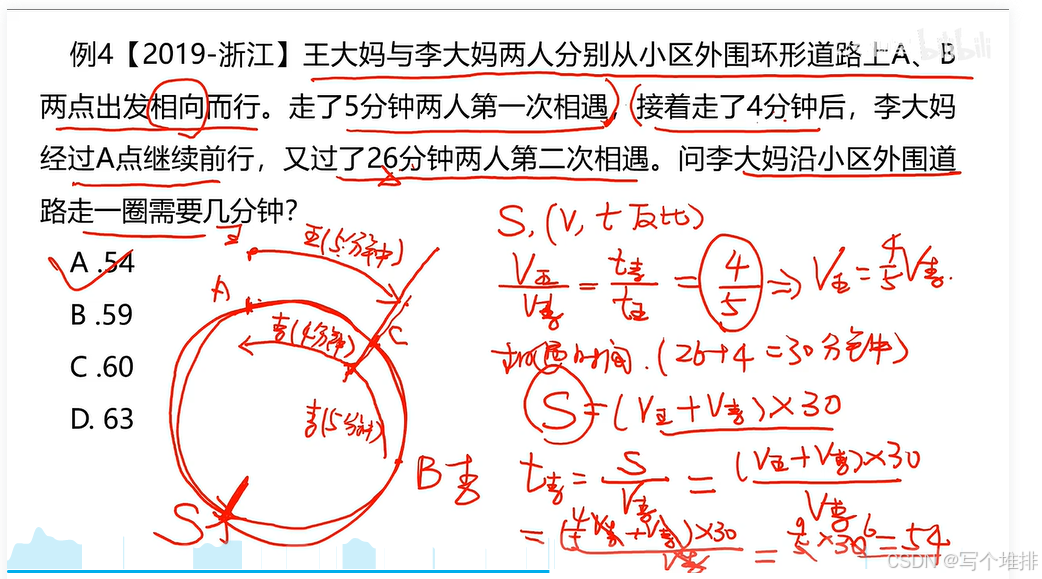 bilibili
例4【2019-浙江】王大妈与李大妈两人分别从小区外围环形道路上A、B
两点出发相向而行。走了5分钟两人第一次相遇,接着走了4分钟后，李大妈
经过A点继续前行，又过了26分钟两人第二次相遇。问李大妈沿小区外围道
路走一圈需要几分钟?
A .54
B .59
C .60
D. 63
王
王(5分钟)
A
李(4分钟)
C
李(5分钟)
B 李
S
S, (V, t 反比)
V王/V李 = t李/t王 = 4/5 => V王 = 4/5 V李.
相遇时间. (26+4=30分钟)
S = (V王+V李)×30
t李 = S/V李 = (V王+V李)×30/V李
= (4/5 V李+V李)×30/V李 = 9/5×30 6 = 54
CSDN @写个堆排